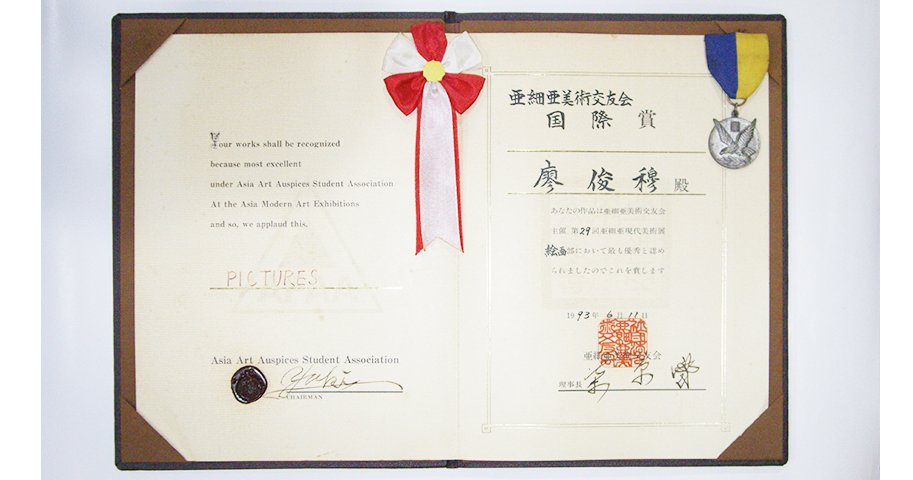 Your works shall be recognized
because most excellent
under Asia Art Auspices Student Association
At the Asia Modern Art Exhibitions
and so, we applaud this.
PICTURES
Asia Art Auspices Student Association
CHAIRMAN
亜細亜美術交友会
国際賞
廖俊穆殿
あなたの作品は亜細亜美術交友会
主催第29回亜細亜現代美術展
絵画部において最も優秀と認め
られましたのでこれを賞します
1993年6月11日
亜細亜美術交友会
理事長